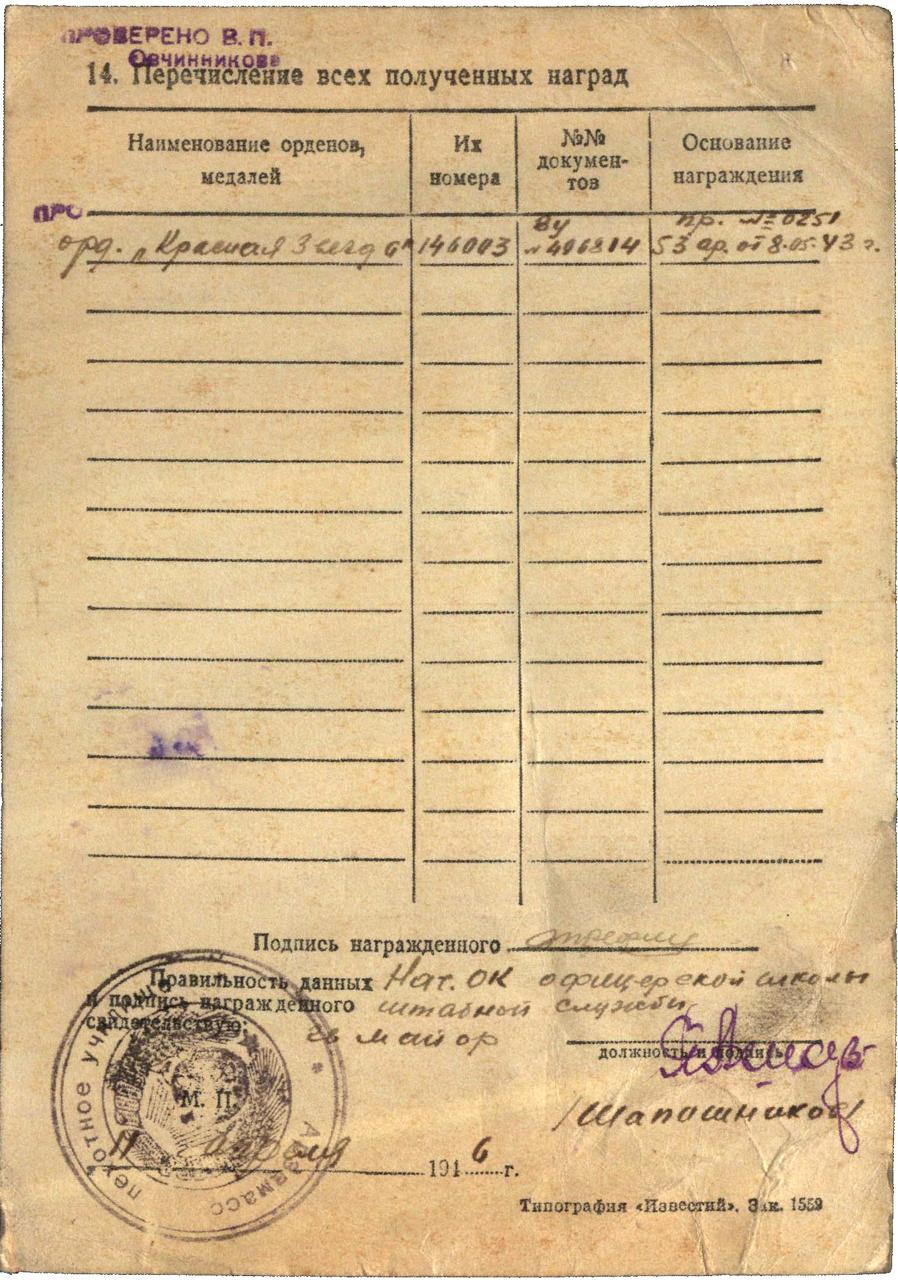 ПРОВЕРЕНО В. П.
Овчинникова
14. Перечисление всех полученных наград
Наименование орденов, медалей
Их номера
№№ документов
Основание награждения
ПРО
орд. "Красная Звезда" 146003 ву №496814 пр. №0251 53 ар. от 8.05.43 г.
Подпись награжденного
Правильность данных
и подпись награжденного
свидетельствую:
Нач. ОК офицерской школы
штабной службы
гв майор
должность и подпись
/Шапошников/
М. П.
пехотное училище * Арзамасс
11 апреля 1946 г.
Типография «Известий». Зак. 1559